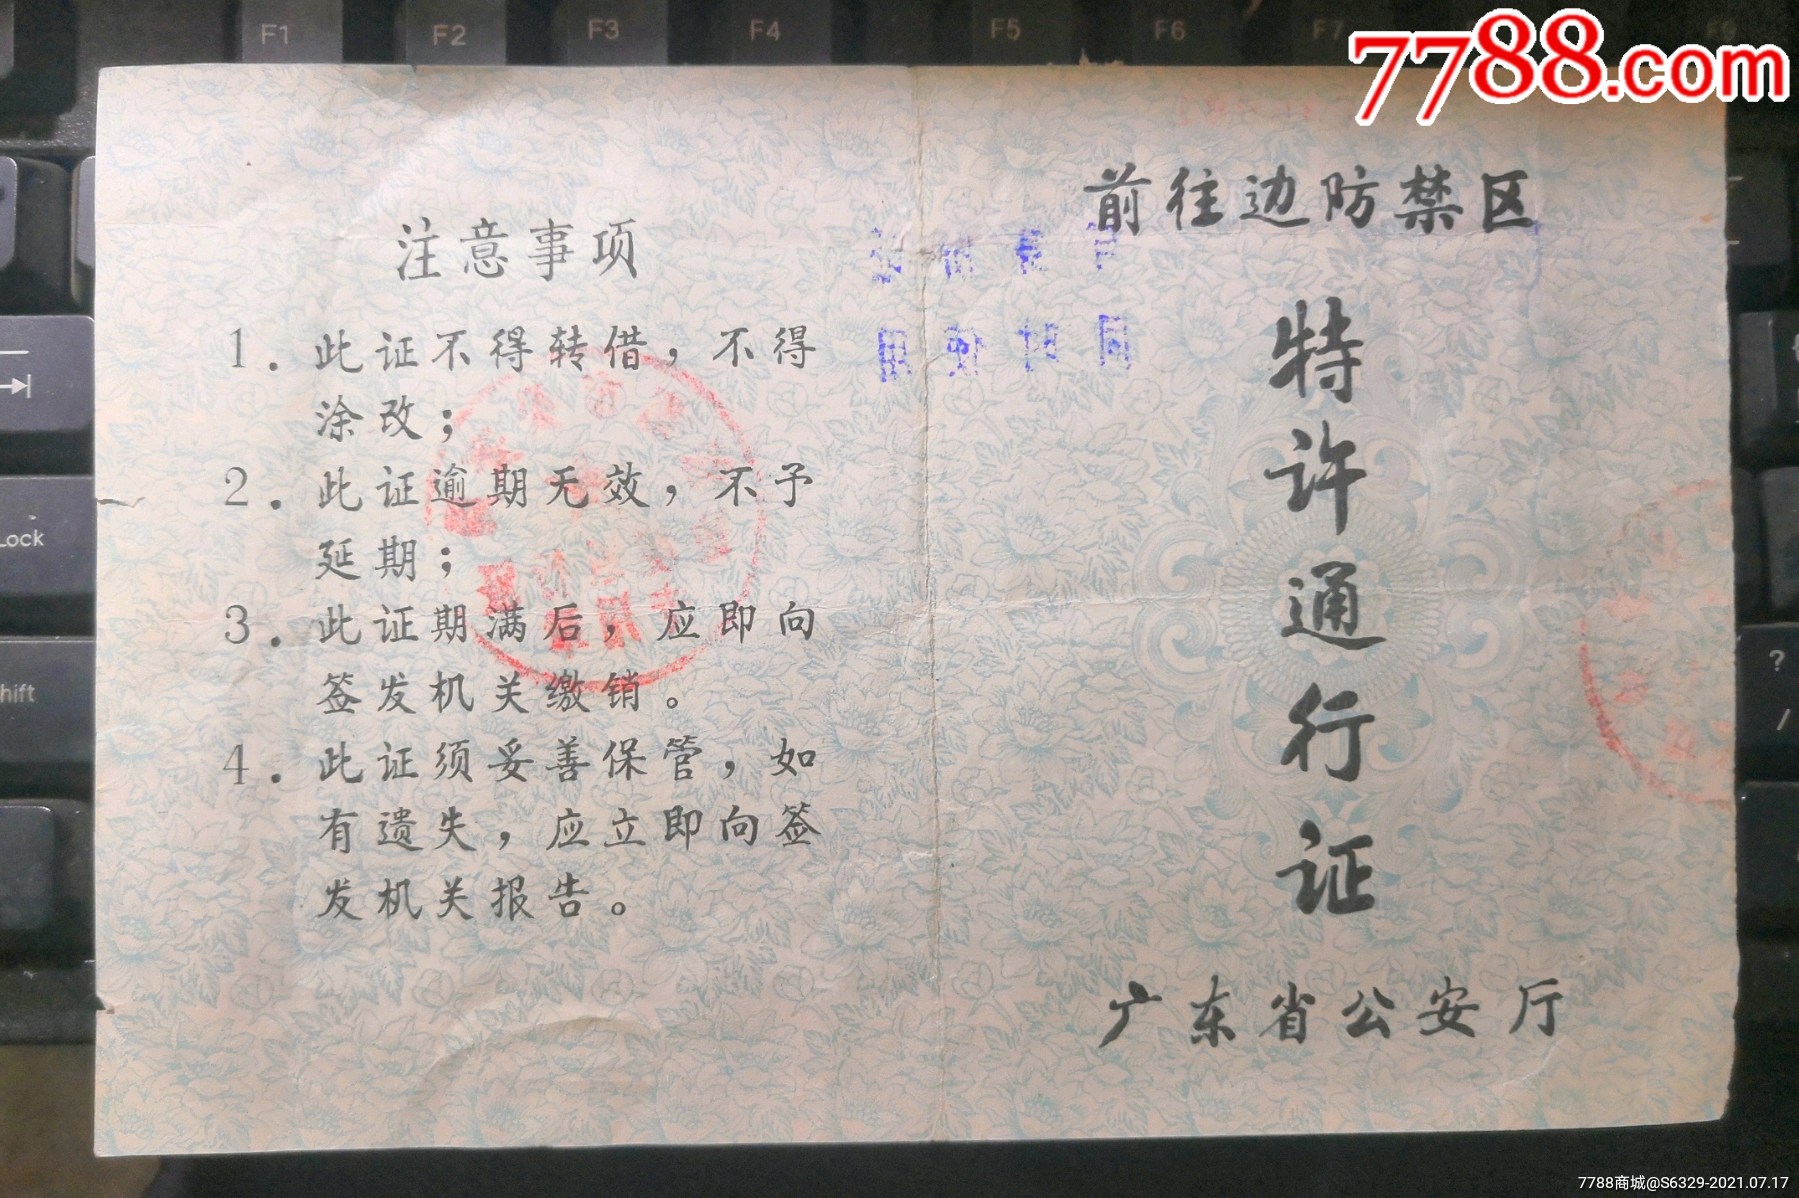 F1 F2 F3 F4 F5 F6 F7
7788.com
Lock
hift
?
/
注意事项
1. 此证不得转借，不得
涂改；
2. 此证逾期无效，不予
延期；
3. 此证期满后，应即向
签发机关缴销。
4. 此证须妥善保管，如
有遗失，应立即向签
发机关报告。
前往边防禁区
特许通行证
广东省公安厅
7788商城@S6329-2021.07.17